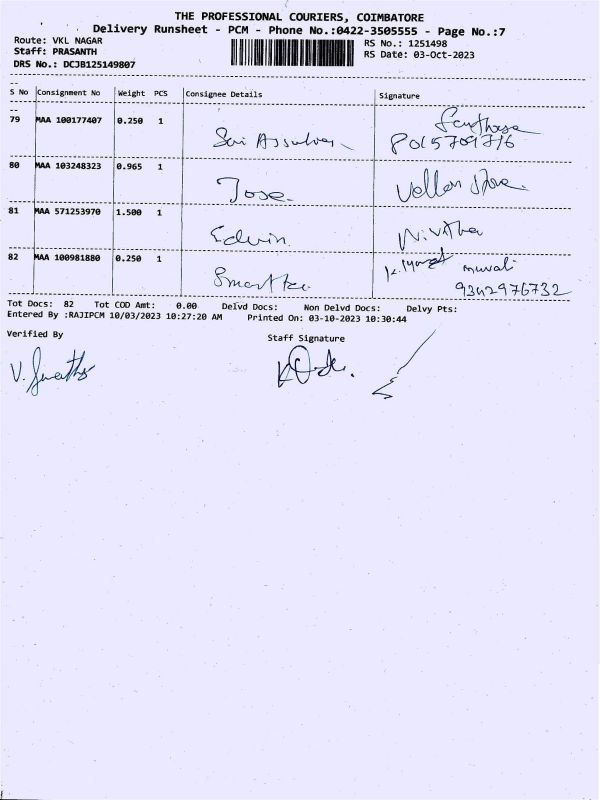 THE PROFESSIONAL COURIERS, COIMBATORE
Delivery Runsheet - PCM - Phone No.:0422-3505555 - Page No.:7
Route: VKL NAGAR
Staff: PRASANTH
DRS No.: DCJB125149807
RS No.: 1251498
RS Date: 03-Oct-2023
S No Consignment No Weight PCS Consignee Details Signature
79 MAA 100177407 0.250 1
8015709776
80 MAA 103248323 0.965 1 Jose.
81 MAA 571253970 1.500 1 Edwin.
82 MAA 100981880 0.250 1
murali
9342976732
Tot Docs: 82 Tot COD Amt: 0.00 Delvd Docs: Non Delvd Docs: Delvy Pts:
Entered By :RAJIPCM 10/03/2023 10:27:20 AM Printed On: 03-10-2023 10:30:44
Verified By
Staff Signature